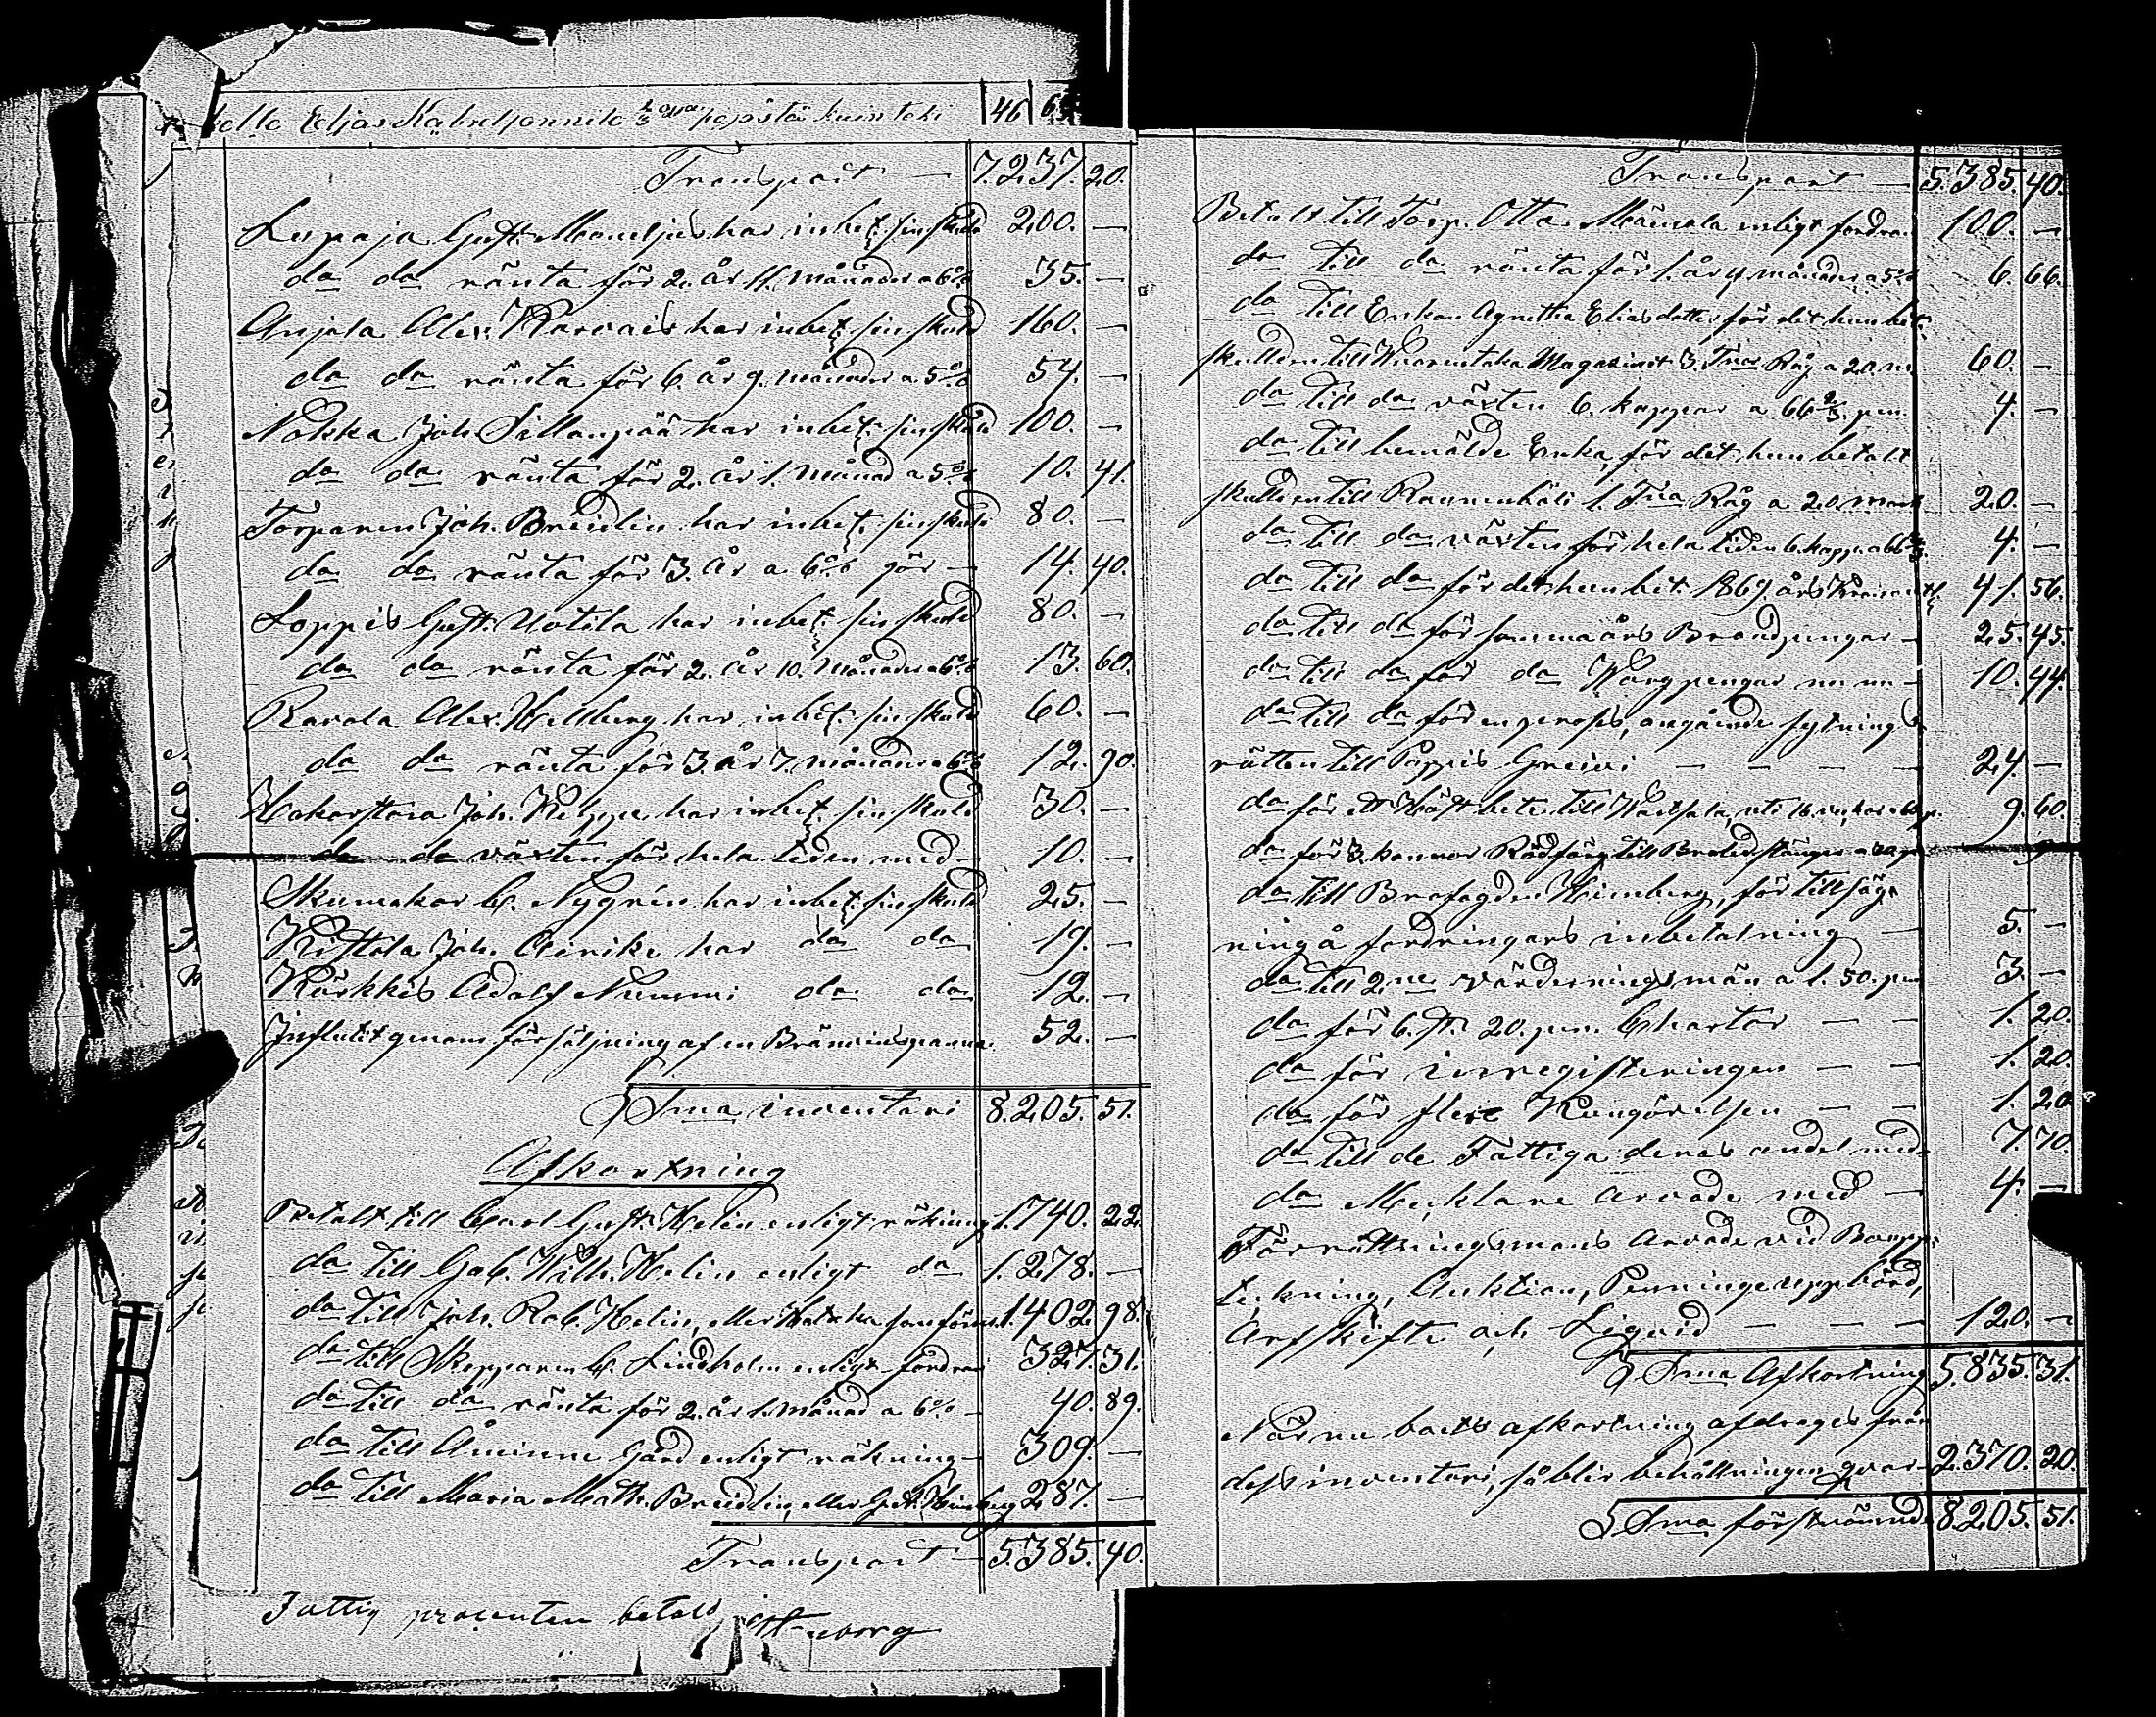 Eljas 46 6
Transport — 7.237. 20.
Lepaja Gust. Maneljus har inbet. sin skuld 200. —
do do ränta för 2. år 11. månader a 6% 35. —
Anjala Alex. har inbet. sin skuld 160. —
do do ränta för 6. år 9. månader a 5% 54. —
Nokka Joh. Sillanpää har inbet. sin skuld 100. —
do do ränta för 2. år 1. månad a 5% 10. 41.
Torparen Joh. Breidlin har inbet. sin skuld 80. —
do do ränta för 3. år a 6% gör — 14. 40.
Loppis Gust. Uotila har inbet. sin skuld 80. —
do do ränta för 2. år 10. månader a 6% 13. 60.
Ravala Alex. Hellberg har inbet. sin skuld 60. —
do do ränta för 3. år 7. månader a 6% 12. 90.
Joh. har inbet. sin skuld 30. —
do do växten för hela tiden med — 10. —
Skumakar C. Nygrén har inbet. sin skuld 25. —
Joh. har do do 19. —
Kärkkis Adolf Nummi do do 12. —
Influtit genom försäljning af en Brännvinspanna 52. —
Sma inventari 8.205. 51.
Afkortning
Betalt till Carl Gust. Helin enligt räkning 1.740. 22.
do till Gab. Wilh. Helin enligt do 1.278. —
do till Joh. Rob. Helin, eller 1.402. 98.
do till Skepparen C. Lindholm enligt fordran 327. 31.
do till do ränta för 2. år 1. månad a 6% — 40. 89.
do till Åminne Gård enligt räkning — 309. —
do till Maria Math. Breidlin, eller Gust. 287. —
Transport — 5.385. 40.
Fattig procenten betald
Transport — 5.385. 40.
Betalt till Torp. Otto enligt fordran 100. —
do till do ränta för 1. år 4 månader a 5% 6. 66.
do till Enkan Agnetha Eliasdotter för det hun bet.
skulden till Magasinet 3. Tnor Råg a 20 m. 60. —
do till do växten 6. kappar a 66 2/3 pen. 4. —
do till bemälde Enka, för det hun betalt
skulden till 1. Tna Råg a 20. mark 20. —
do till do växten för hela tiden 6. kapp. a 66 2/3. 4. —
do till do för det hun bet. 1869. års 41. 56.
do till do för samma års Brandpengar — 25. 45.
do till do för do Wargpengar — 10. 44.
do till do för en process, angående sytnings
rätten till Pappis — — — — 24. —
do för ett bete till 9. 60.
do för 3. kannor Rödfärg till
do till Brofogden Heinberg, för tillsäg-
ning å fordringars inbetalning — 5. —
do till 2ne värderingsmän a 1. 50. pen 3. —
do för 6. st. 20. pen. Chartor — — 1. 20.
do för inregisteringen — — 1. 20.
do för flere Kungörelsen — — 1. 20
do till de Fattiga deras andel med 7. 70.
do Mecklare arvode med — 4. —
Förrättningsmans Arvode vid Boupp-
tekning, Auktion, Penninge uppbörd,
Arfskifte och Liqvid — — — 120. —
Sma Afkortning 5.835. 31.
När nu boets afkortning afdrages från
dess inventari, så blir behållningen qvar 2.370. 20.
Sma förstnämnde 8.205. 51.